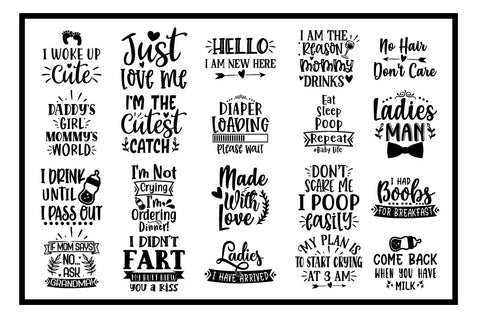 I WOKE UP
Cute
Just
love me
HELLO
I AM NEW HERE
I AM THE
Reason
mommy
DRINKS
No Hair
Don't Care
DADDY'S
GIRL
MOMMY'S
WORLD
I'M THE
Cutest
CATCH
DIAPER
LOADING
Please wait
Eat
Sleep
Poop
Repeat
#Baby life
Ladies
MAN
I DRINK
UNTIL
I PASS OUT
I'm Not
Crying
I'm
Ordering
Dinner!
Made
With
Love
DON'T
SCARE ME
I POOP
easily
I HAD
Boobs
FOR BREAKFAST
IF MOM SAYS
NO..
ASK
GRANDMA
I DIDN'T
FART
MY BUTT BLEW
YOU A KISS
Ladies
I HAVE ARRIVED
MY PLAN IS
TO START CRYING
AT 3 AM
COME BACK
WHEN YOU HAVE
MILK